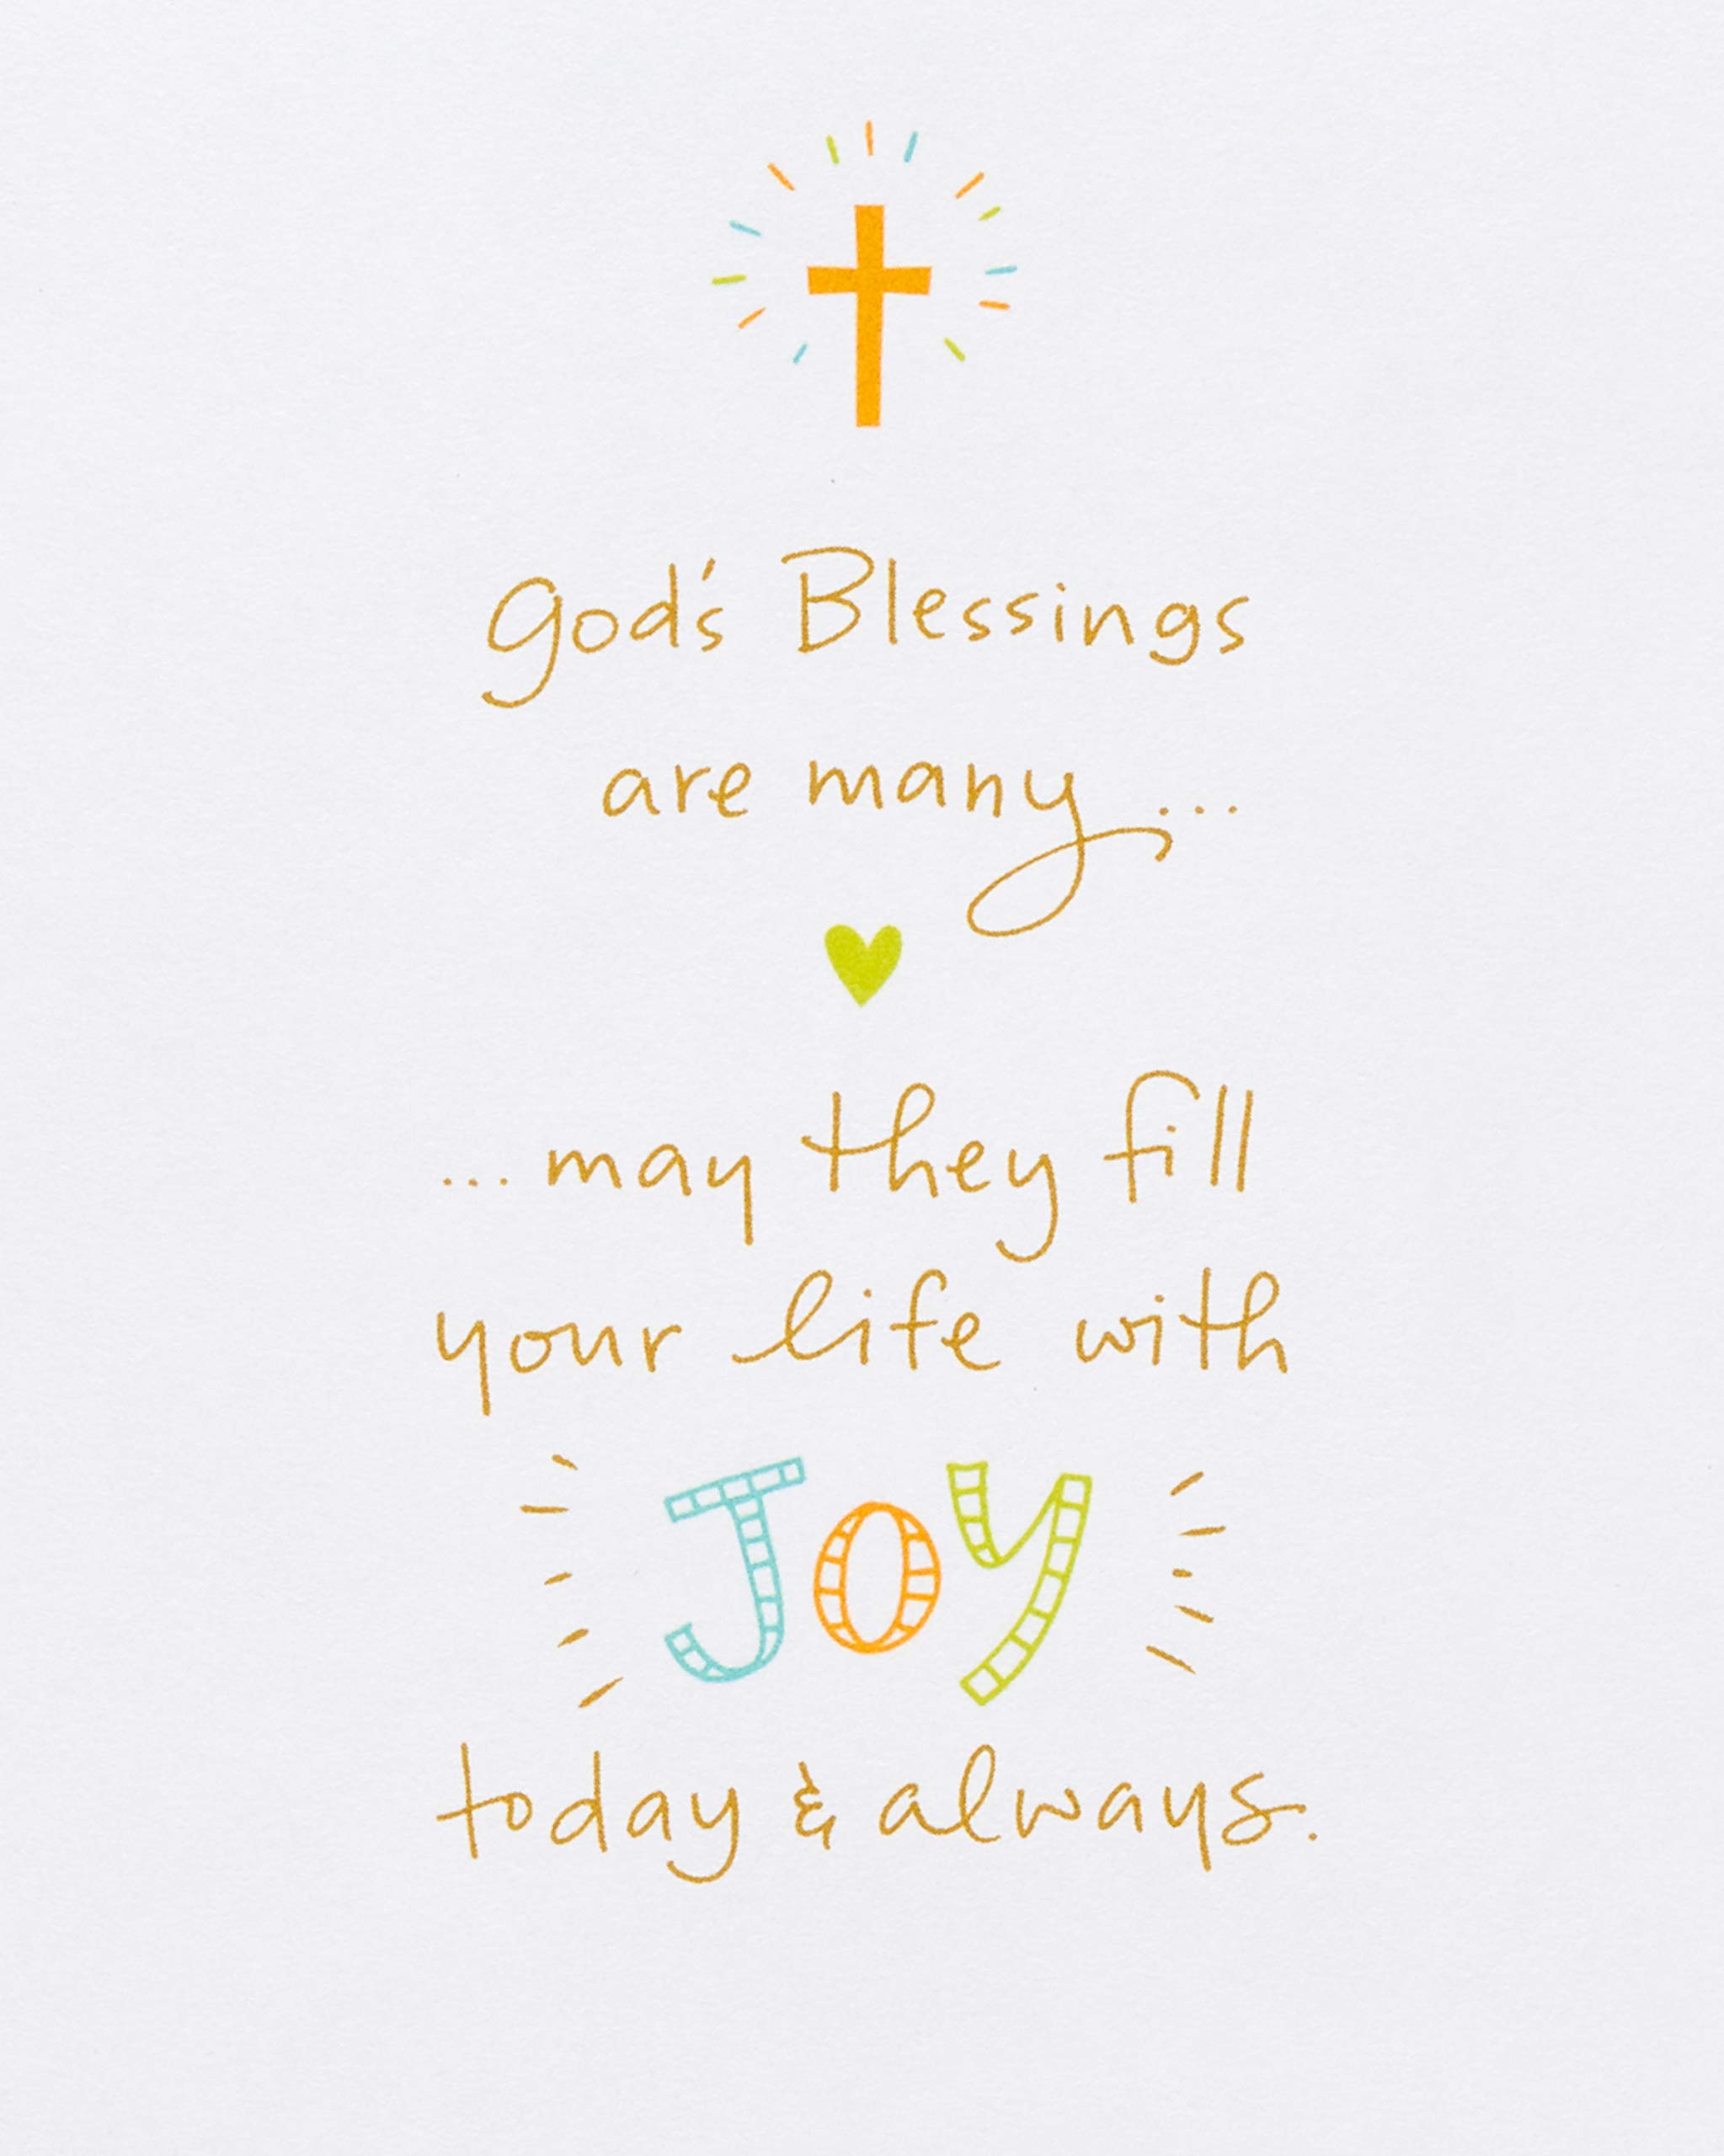 God's Blessings
are many...
...may they fill
your life with
JOY
today & always.